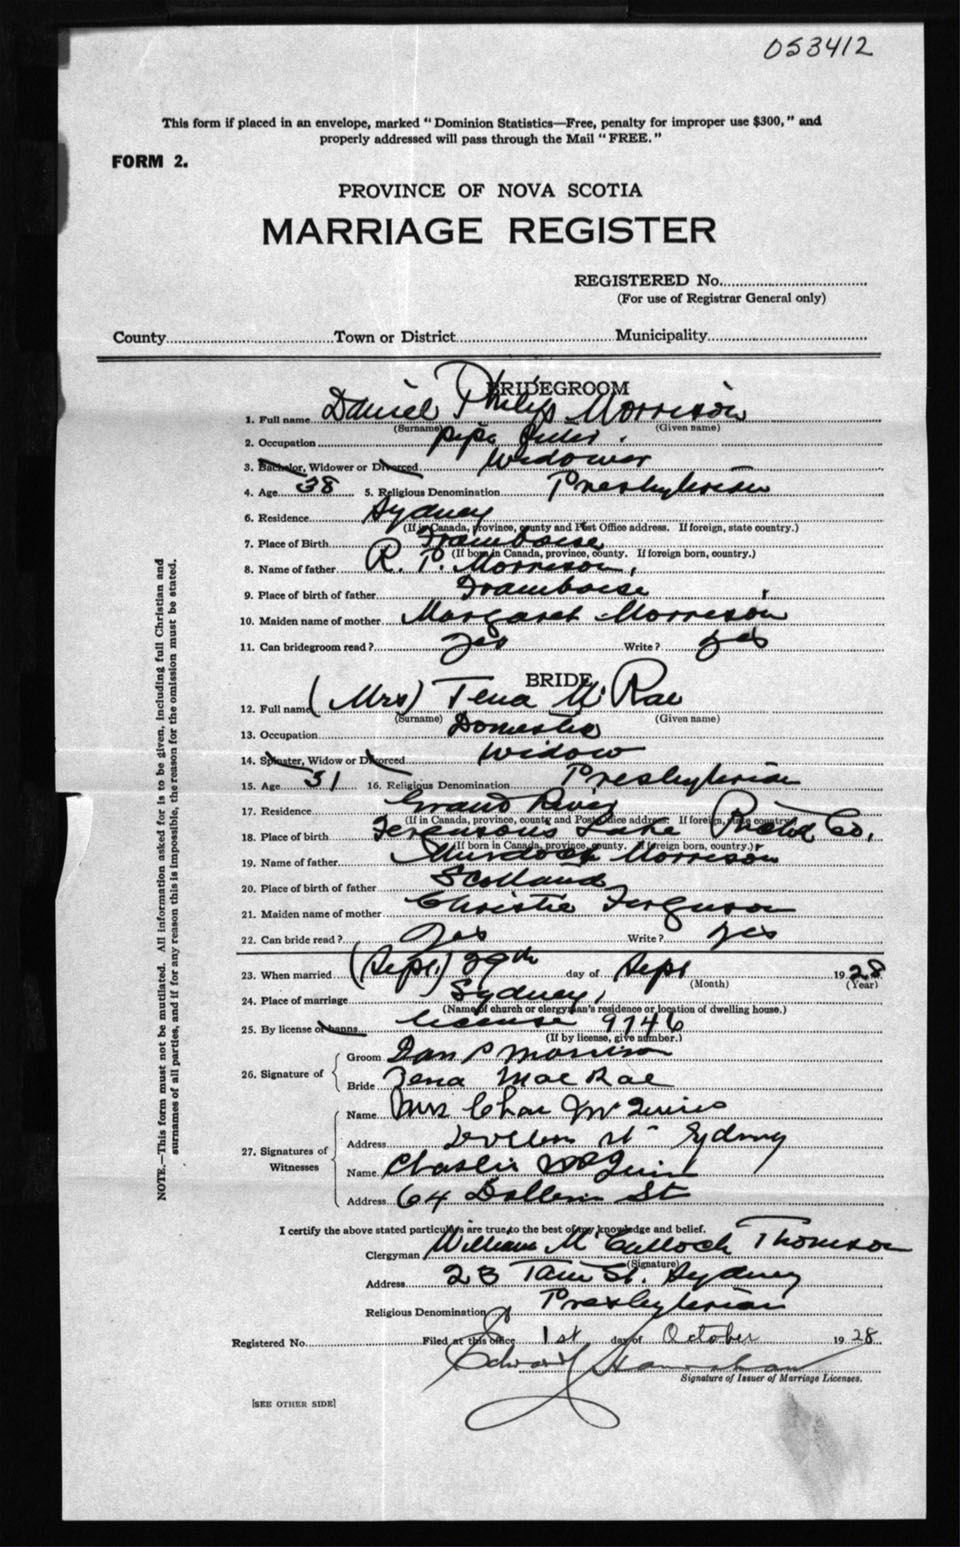 053412
This form if placed in an envelope, marked "Dominion Statistics—Free, penalty for improper use $300," and
properly addressed will pass through the Mail "FREE."
FORM 2.
PROVINCE OF NOVA SCOTIA
MARRIAGE REGISTER
REGISTERED No.
(For use of Registrar General only)
County Town or District Municipality
BRIDEGROOM
1. Full name Daniel Philip Morrison
(Surname) (Given name)
2. Occupation pipe
3. Bachelor, Widower or Divorced Widower
4. Age 38 5. Religious Denomination Presbyterian
6. Residence Sydney
(If in Canada, province, county and Post Office address. If foreign, state country.)
7. Place of Birth Framboise
(If born in Canada, province, county. If foreign born, country.)
8. Name of father R. P. Morrison
9. Place of birth of father Framboise
10. Maiden name of mother Margaret Morrison
11. Can bridegroom read? Yes Write? Yes
BRIDE
12. Full name (Mrs) Tena McRae
(Surname) (Given name)
13. Occupation Domestic
14. Spinster, Widow or Divorced Widow
15. Age 31 16. Religious Denomination Presbyterian
17. Residence Grand River
(If in Canada, province, county and Post Office address. If foreign, state country.)
18. Place of birth Fergusons Lake Richd Co.
(If born in Canada, province, county. If foreign born, country.)
19. Name of father Murdock Morrison
20. Place of birth of father Scotland
21. Maiden name of mother Christie Ferguson
22. Can bride read? Yes Write? Yes
23. When married (Sept.) 29th day of Sept 1928
(Month) (Year)
24. Place of marriage Sydney
(Name of church or clergyman's residence or location of dwelling house.)
25. By license or banns license 9746
(If by license, give number.)
26. Signature of
Groom Dan P Morrison
Bride Tena MacRae
27. Signatures of Witnesses
Name Mrs Chas
Address St Sydney
Name
Address 64 St
I certify the above stated particulars are true to the best of my knowledge and belief.
Clergyman William McCulloch Thomson
(Signature)
Address 23 Tain St. Sydney
Religious Denomination Presbyterian
Registered No. Filed at this office 1st day of October 1928
Edward
Signature of Issuer of Marriage Licenses.
[SEE OTHER SIDE]
NOTE.—This form must not be mutilated. All information asked for is to be given, including full Christian and
surnames of all parties, and if for any reason this is impossible, the reason for the omission must be stated.